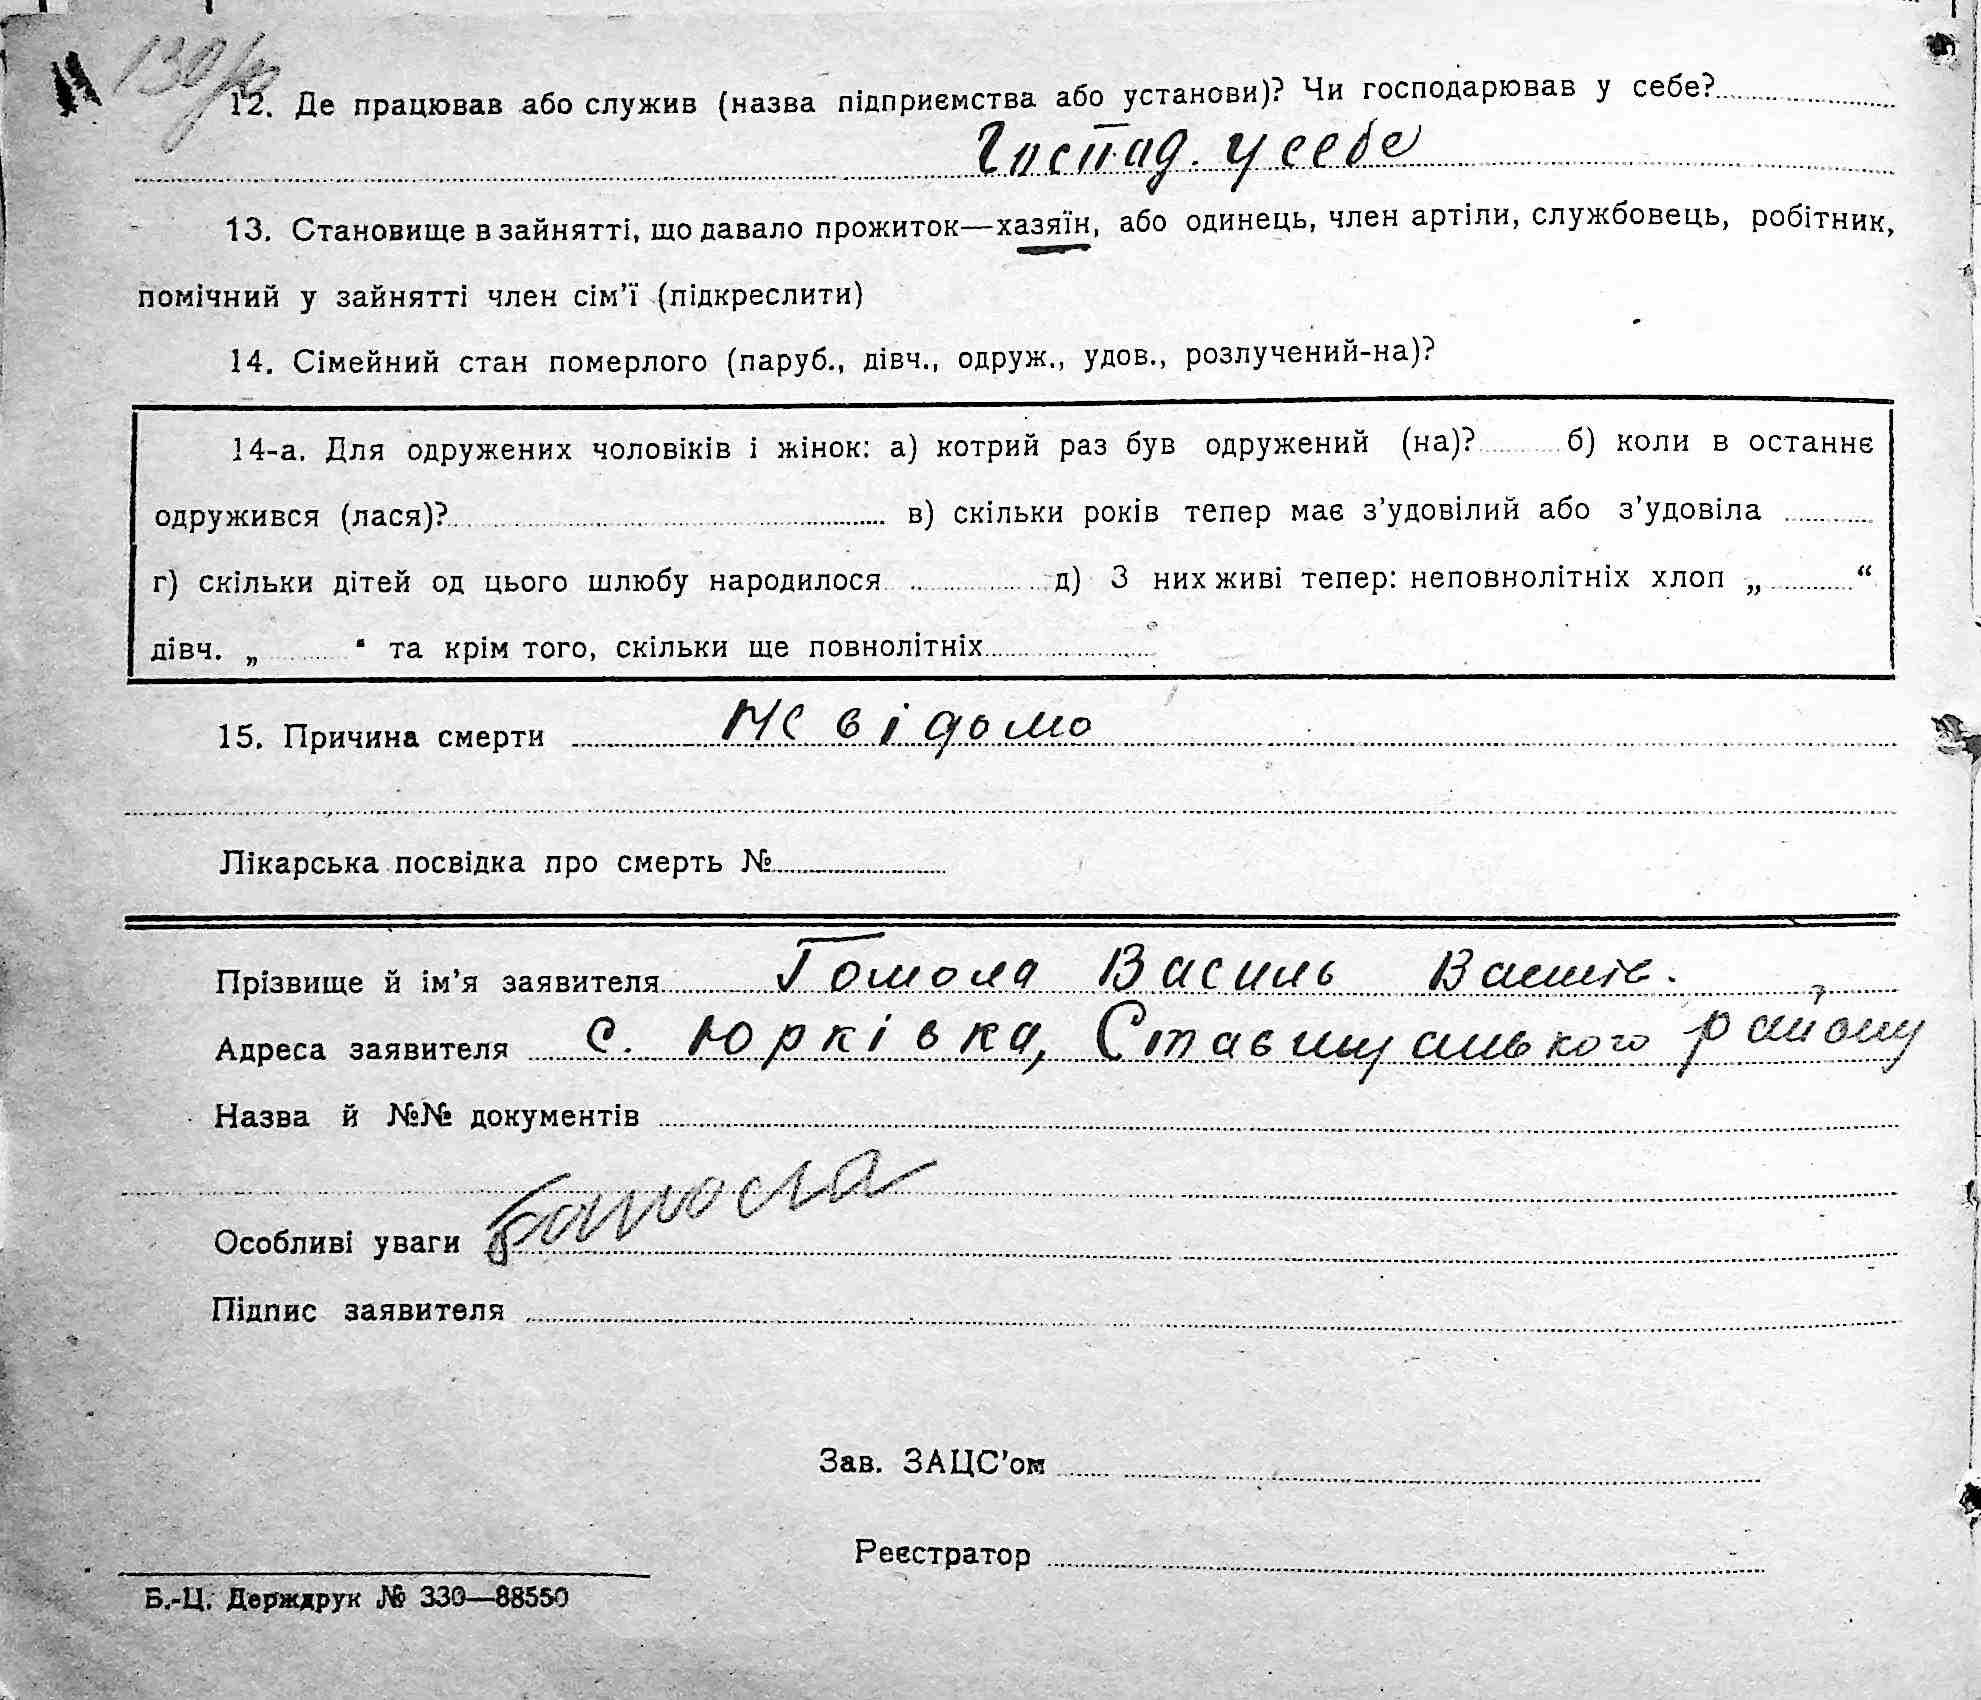 12. Де працював або служив (назва підприємства або установи)? Чи господарював у себе?
Господ. у себе
13. Становище в зайнятті, що давало прожиток—хазяїн, або одинець, член артіли, службовець, робітник,
помічний у зайнятті член сім’ї (підкреслити)
14. Сімейний стан померлого (паруб., дівч., одруж., удов., розлучений-на)?
14-а. Для одружених чоловіків і жінок: а) котрий раз був одружений (на)? б) коли в останнє
одружився (лася)? в) скільки років тепер має з’удовілий або з’удовіла
г) скільки дітей од цього шлюбу народилося д) З них живі тепер: неповнолітніх хлоп „ “
дівч. „ “ та крім того, скільки ще повнолітніх
15. Причина смерти Не відомо
Лікарська посвідка про смерть №
Прізвище й ім’я заявителя Гомола Василь Васил.
Адреса заявителя с. Юрківка, Ставищанського району
Назва й №№ документів
Особливі уваги
Підпис заявителя
Зав. ЗАЦС’ом
Реєстратор
Б.-Ц. Держдрук № 330—88550